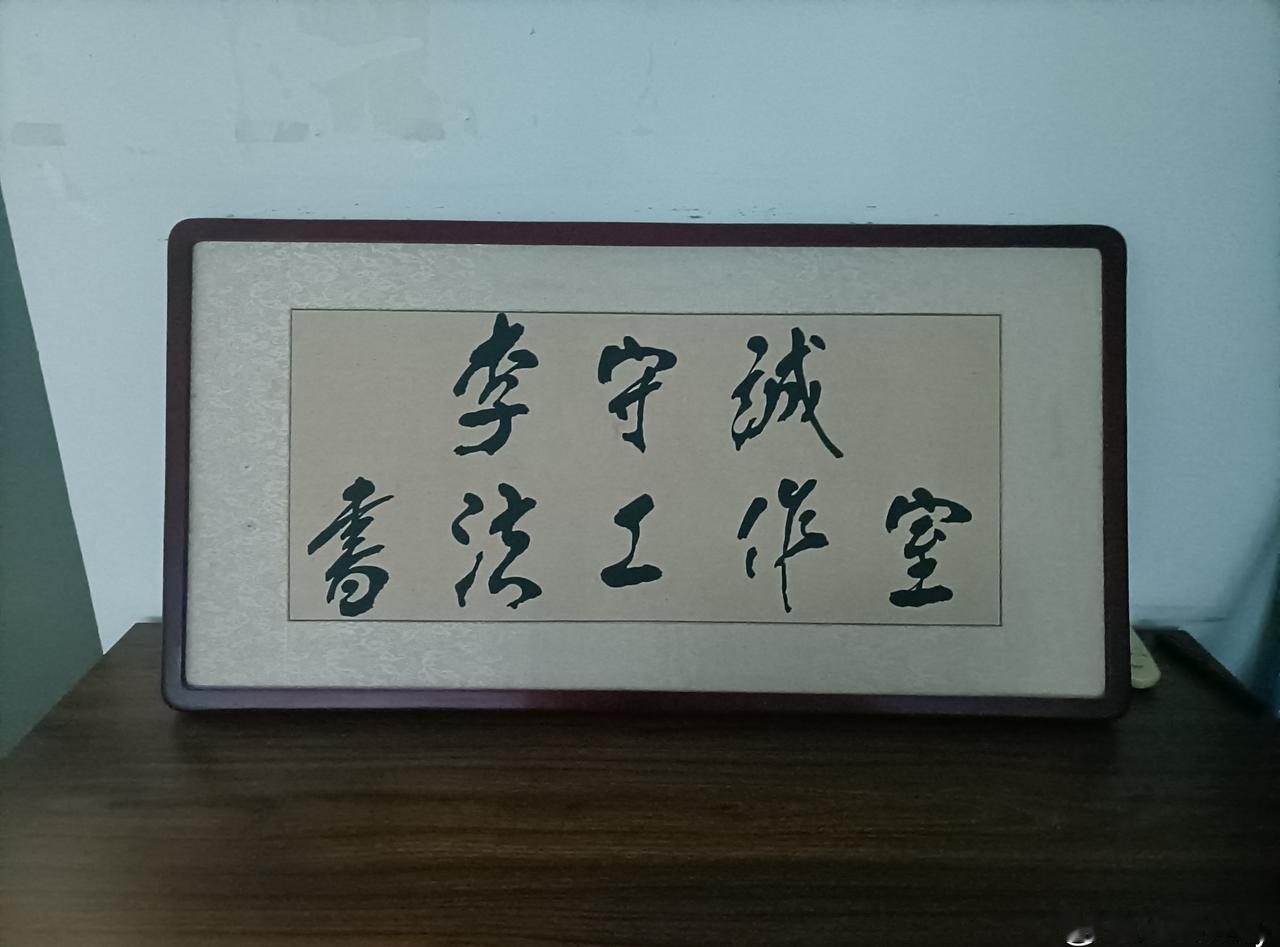 李守誠
書法工作室